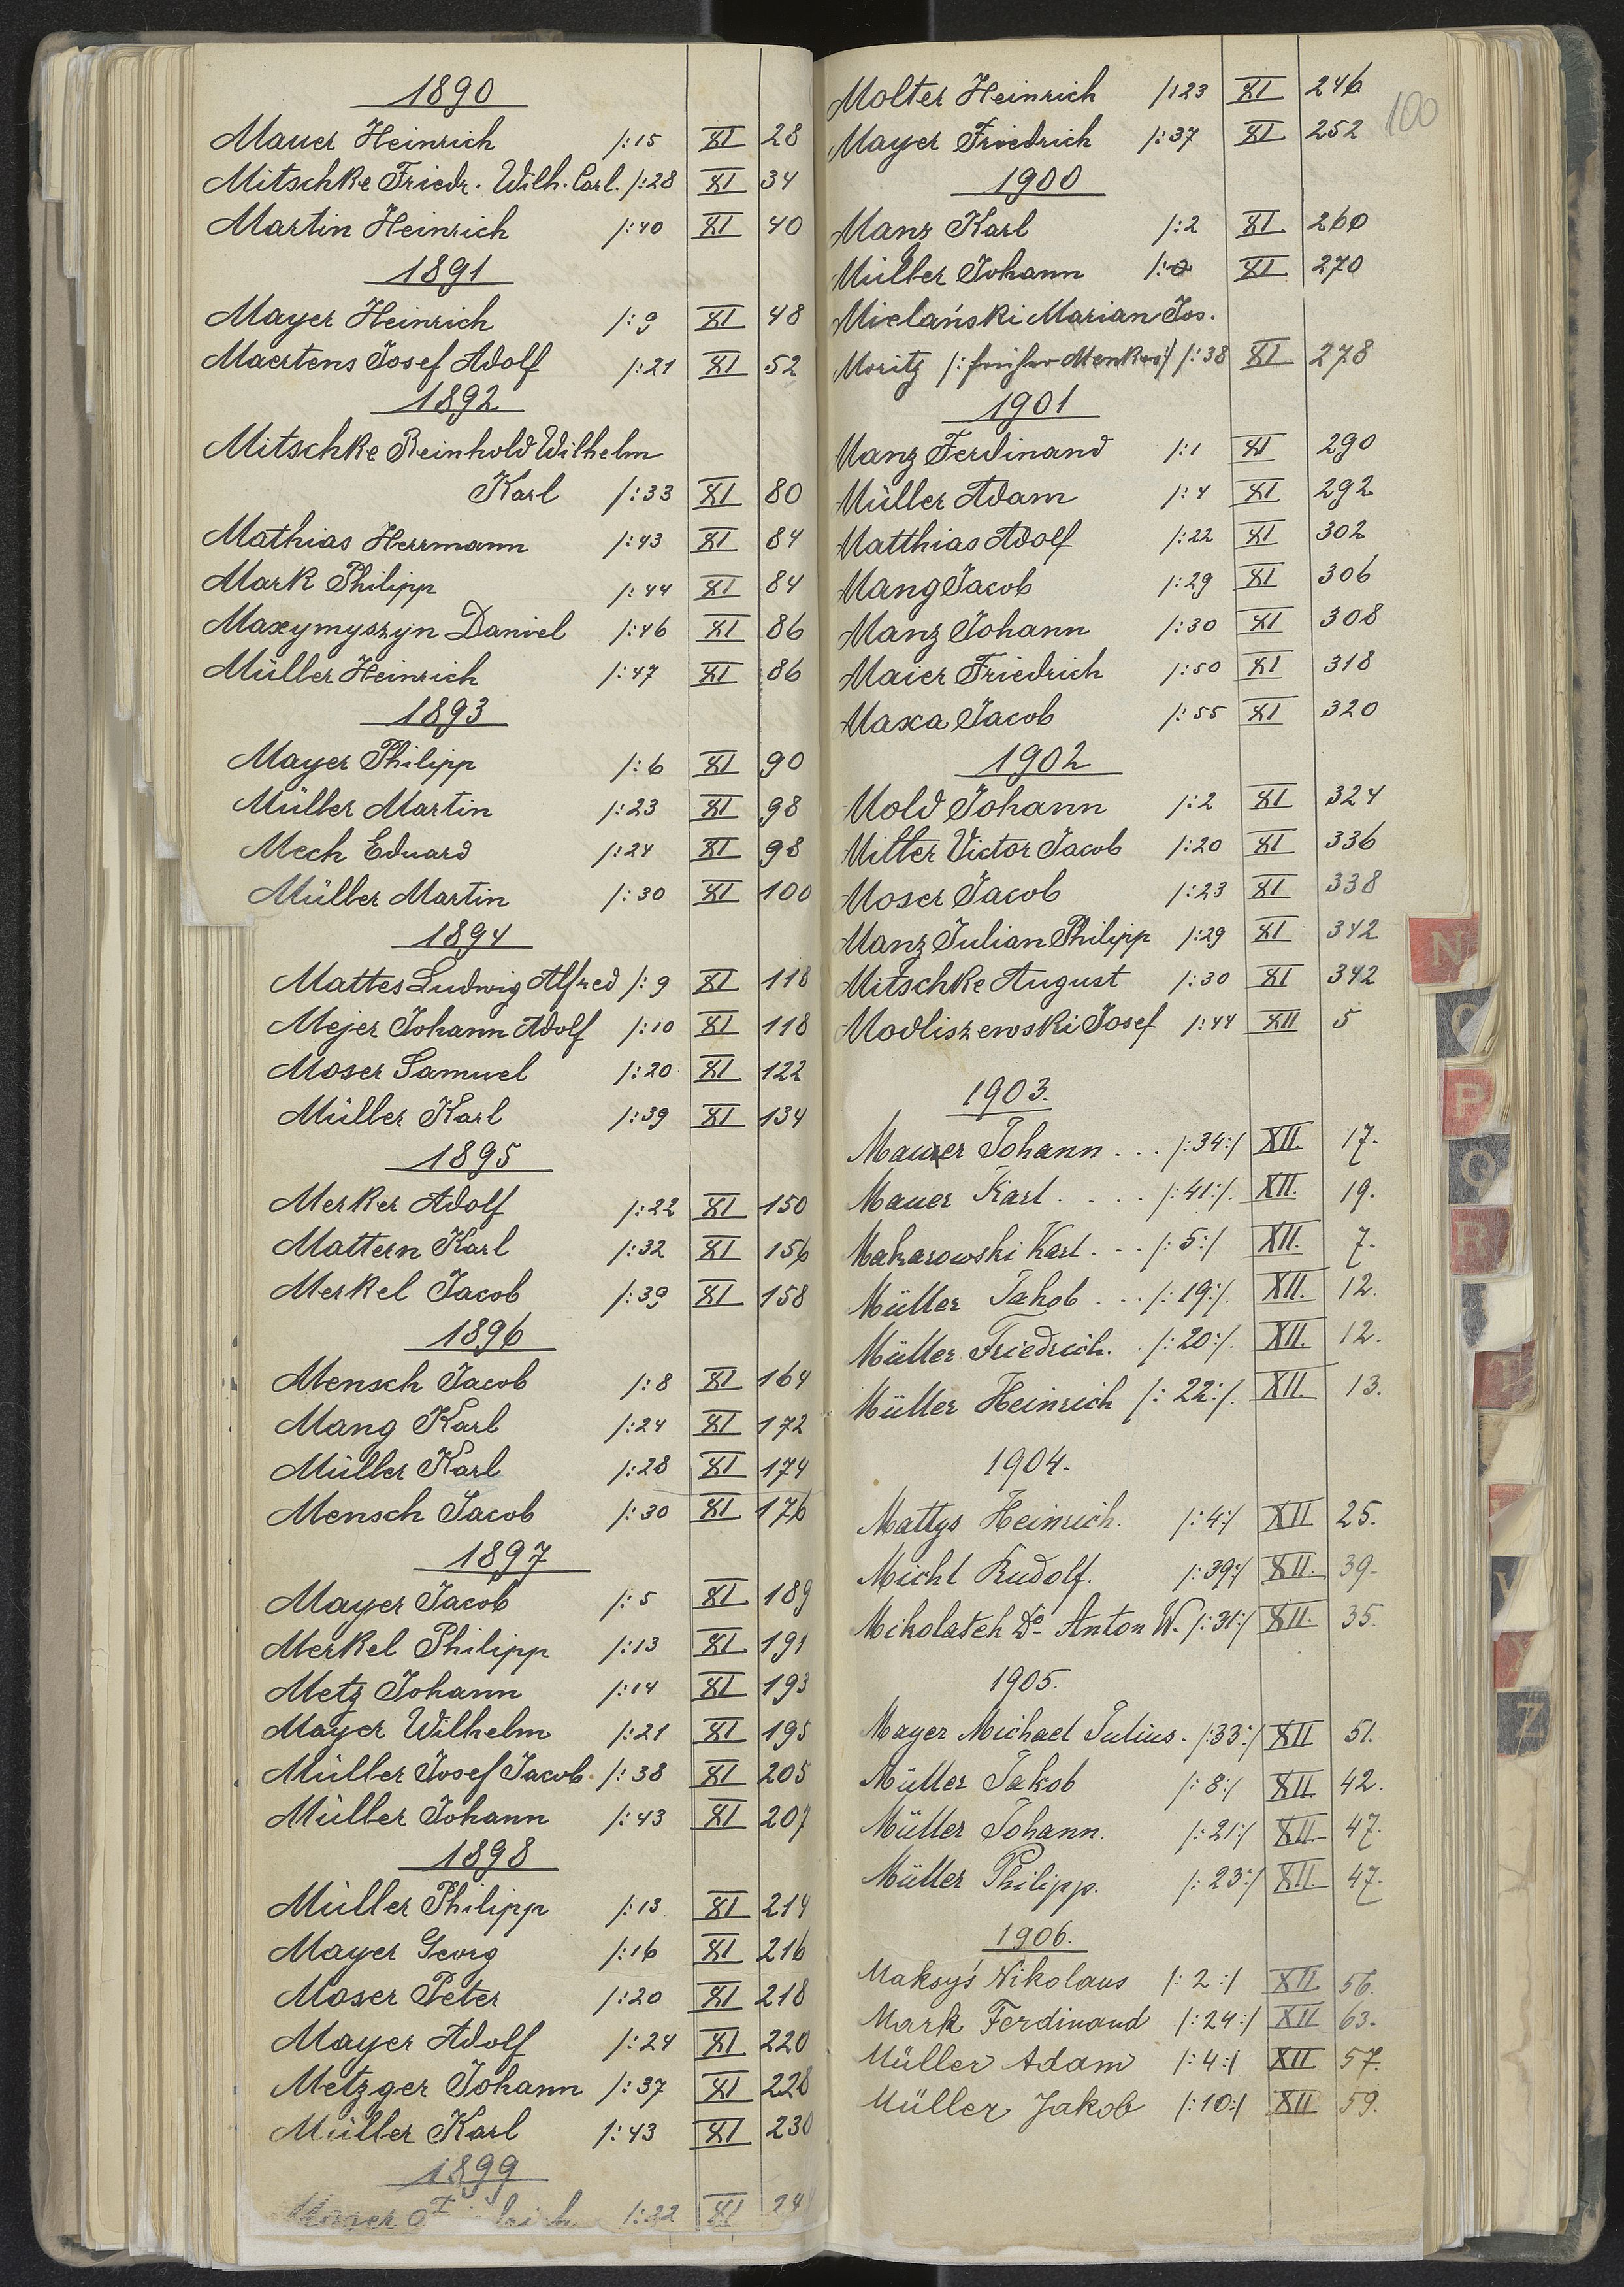 1890
Mauer Heinrich /:15 XI 28
Mitschke Friedr. Wilh. Carl. /:28 XI 34
Martin Heinrich /:40 XI 40
1891
Mayer Heinrich /:9 XI 48
Maertens Josef Adolf /:21 XI 52
1892
Mitschke Reinhold Wilhelm
Karl /:33 XI 80
Mathias Herrmann /:43 XI 84
Mark Philipp /:44 XI 84
Maxymyszyn Daniel /:46 XI 86
Müller Heinrich /:47 XI 86
1893
Mayer Philipp /:6 XI 90
Müller Martin /:23 XI 98
Mech Eduard /:24 XI 98
Müller Martin /:30 XI 100
1894
Mattes Ludwig Alfred /:9 XI 118
Mejer Johann Adolf /:10 XI 118
Moser Samuel /:20 XI 122
Müller Karl /:39 XI 134
1895
Merker Adolf /:22 XI 150
Mattern Karl /:32 XI 156
Merkel Jacob /:39 XI 158
1896
Mensch Jacob /:8 XI 164
Mang Karl /:24 XI 172
Müller Karl /:28 XI 174
Mensch Jacob /:30 XI 176
1897
Mayer Jacob /:5 XI 189
Merkel Philipp /:13 XI 191
Metz Johann /:14 XI 193
Mayer Wilhelm /:21 XI 195
Müller Josef Jacob. /:38 XI 205
Müller Johann /:43 XI 207
1898
Müller Philipp /:13 XI 214
Mayer Georg /:16 XI 216
Moser Peter /:20 XI 218
Mayer Adolf /:24 XI 220
Metzger Johann /:37 XI 228
Müller Karl /:43 XI 230
1899
/:22 XI
Molter Heinrich /:23 XI 246
100
Mayer Friedrich /:37 XI 252
1900
Manz Karl /:2 XI 260
Müller Johann XI 270
Mielański Marian Jos.
Moritz /: früher Menkes:/ /:38 XI 278
1901
Manz Ferdinand /:1 XI 290
Müller Adam /:4 XI 292
Matthias Adolf /:22 XI 302
Mang Jacob /:29 XI 306
Manz Johann /:30 XI 308
Maier Friedrich /:50 XI 318
Maxa Jacob /:55 XI 320
1902
Mold Johann /:2 XI 324
Miller Victor Jacob /:20 XI 336
Moser Jacob /:23 XI 338
Manz Julian Philipp /:29 XI 342
Mitschke August /:30 XI 342
Modliszewski Josef /:44 XII 5
1903.
Maurer Johann . . . /:34:/ XII. 17.
Mauer Karl . . . . /:41:/. XII. 19.
Makarowski Karl . . . /:5:/ XII. 7.
Müller Jakob . . . /:19:/. XII. 12.
Müller Friedrich. . /:20:/. XII. 12.
Müller Heinrich /:22:/. XII. 13.
1904.
Mattys Heinrich. /:4:/ XII 25.
Michl Rudolf. /:39:/ XII. 39.
Mikolasch Dr. Anton W. /:31:/ XII. 35.
1905.
Mayer Michael Julius. /:33:/ XII 51.
Müller Jakob /:8:/ XII. 42.
Müller Johann. /:21:/ XII. 47.
Müller Philipp. /:23:/ XII. 47.
1906.
Maksyś Nikolaus /:2:/ XII 56.
Mark Ferdinand /:24:/ XII 63.
Müller Adam /:4:/ XII 57.
Müller Jakob /:10:/ XII 59.
N
O
P
Q
R
T
V
Z